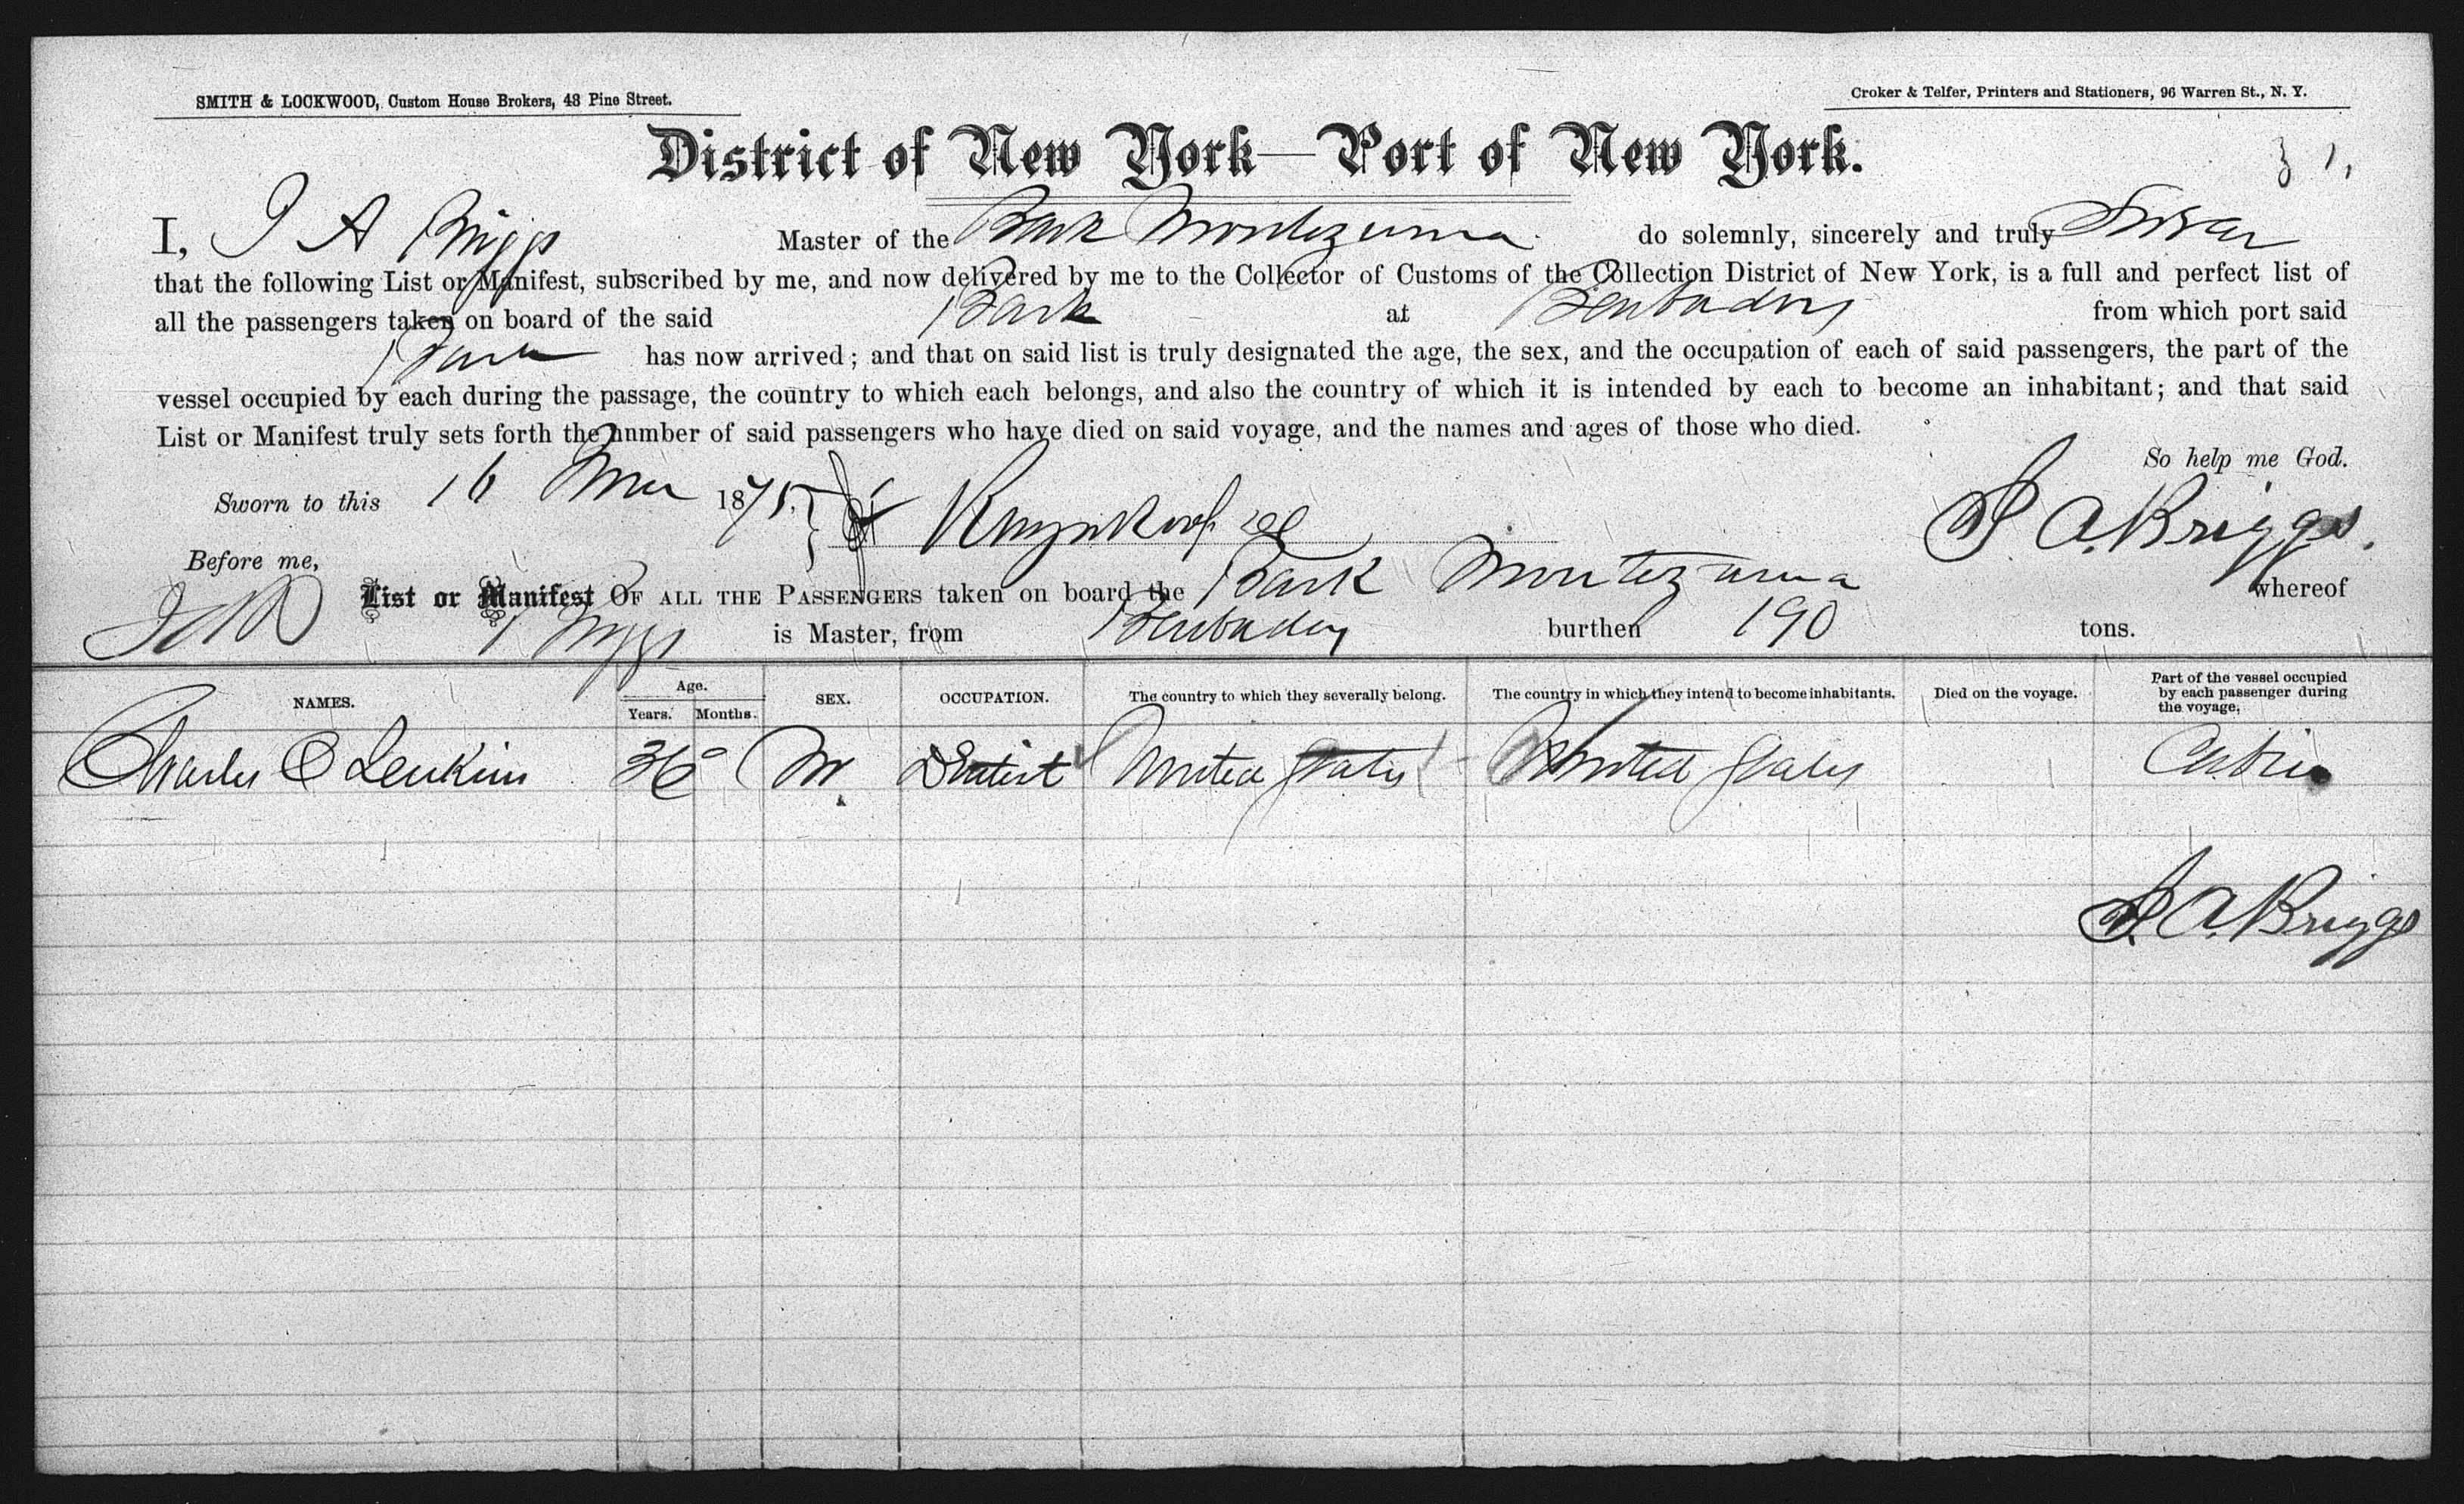 SMITH & LOCKWOOD, Custom House Brokers, 48 Pine Street.
Croker & Telfer, Printers and Stationers, 96 Warren St., N. Y.
District of New York—Port of New York.
I, J A Briggs Master of the Bark Montezuma do solemnly, sincerely and truly Swear
that the following List or Manifest, subscribed by me, and now delivered by me to the Collector of Customs of the Collection District of New York, is a full and perfect list of
all the passengers taken on board of the said Bark at from which port said
Bark has now arrived; and that on said list is truly designated the age, the sex, and the occupation of each of said passengers, the part of the
vessel occupied by each during the passage, the country to which each belongs, and also the country of which it is intended by each to become an inhabitant; and that said
List or Manifest truly sets forth the number of said passengers who have died on said voyage, and the names and ages of those who died.
So help me God.
Sworn to this 16 1875. J. A. Briggs.
Before me,
List or Manifest OF ALL THE PASSENGERS taken on board the Bark Montezuma whereof
Briggs is Master, from burthen 190 tons.
NAMES. Age. Years. Months. SEX. OCCUPATION. The country to which they severally belong. The country in which they intend to become inhabitants. Died on the voyage. Part of the vessel occupied by each passenger during the voyage.
Charles C Jenkins 36 M. Dentist United States United States Cabin
J. A. Briggs